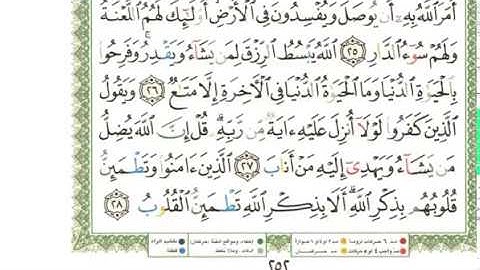 أَمَرَ ٱللَّهُ بِهِۦٓ أَن يُوصَلَ وَيُفْسِدُونَ فِى ٱلْأَرْضِ أُو۟لَٰٓئِكَ لَهُمُ ٱللَّعْنَةُ
وَلَهُمْ سُوٓءُ ٱلدَّارِ ٢٥ ٱللَّهُ يَبْسُطُ ٱلرِّزْقَ لِمَن يَشَآءُ وَيَقْدِرُ وَفَرِحُوا۟
بِٱلْحَيَوٰةِ ٱلدُّنْيَا وَمَا ٱلْحَيَوٰةُ ٱلدُّنْيَا فِى ٱلْءَاخِرَةِ إِلَّا مَتَٰعٌ ٢٦ وَيَقُولُ
ٱلَّذِينَ كَفَرُوا۟ لَوْلَآ أُنزِلَ عَلَيْهِ ءَايَةٌ مِّن رَّبِّهِۦ قُلْ إِنَّ ٱللَّهَ يُضِلُّ
مَن يَشَآءُ وَيَهْدِىٓ إِلَيْهِ مَنْ أَنَابَ ٢٧ ٱلَّذِينَ ءَامَنُوا۟ وَتَطْمَئِنُّ
قُلُوبُهُم بِذِكْرِ ٱللَّهِ أَلَا بِذِكْرِ ٱللَّهِ تَطْمَئِنُّ ٱلْقُلُوبُ ٢٨
٢٥٢